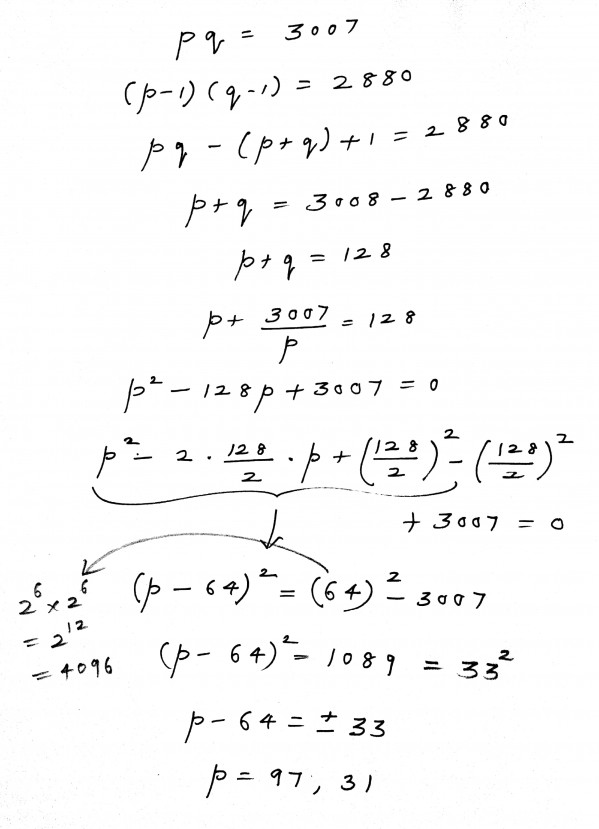 pq = 3007
(p-1)(q-1) = 2880
pq - (p+q)+1 = 2880
p+q = 3008 - 2880
p+q = 128
p + 3007/p = 128
p² - 128p + 3007 = 0
p² - 2 · 128/2 · p + (128/2)² - (128/2)²
+ 3007 = 0
(p - 64)² = (64)² - 3007
2⁶ × 2⁶
= 2¹²
= 4096
(p - 64)² = 1089 = 33²
p - 64 = ± 33
p = 97, 31